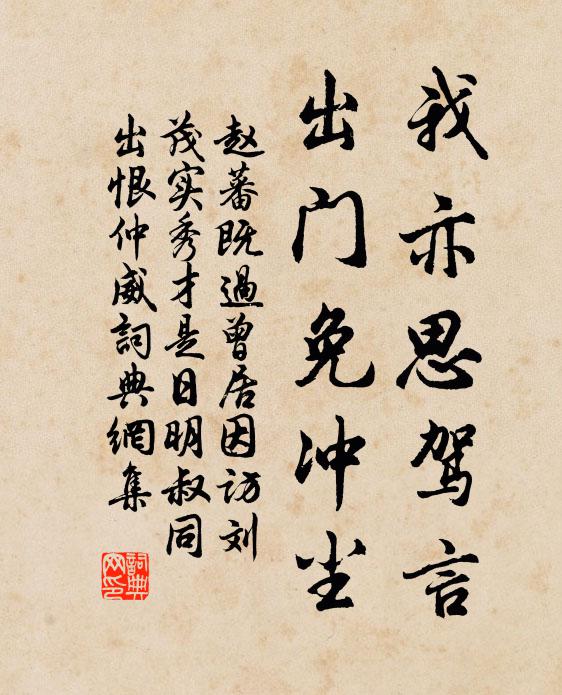 我亦思驾言
出门免冲尘
赵蕃既過曾居因访刘
茂实秀才是日明叔同
出恨仲威詞典網集
詞典
网印